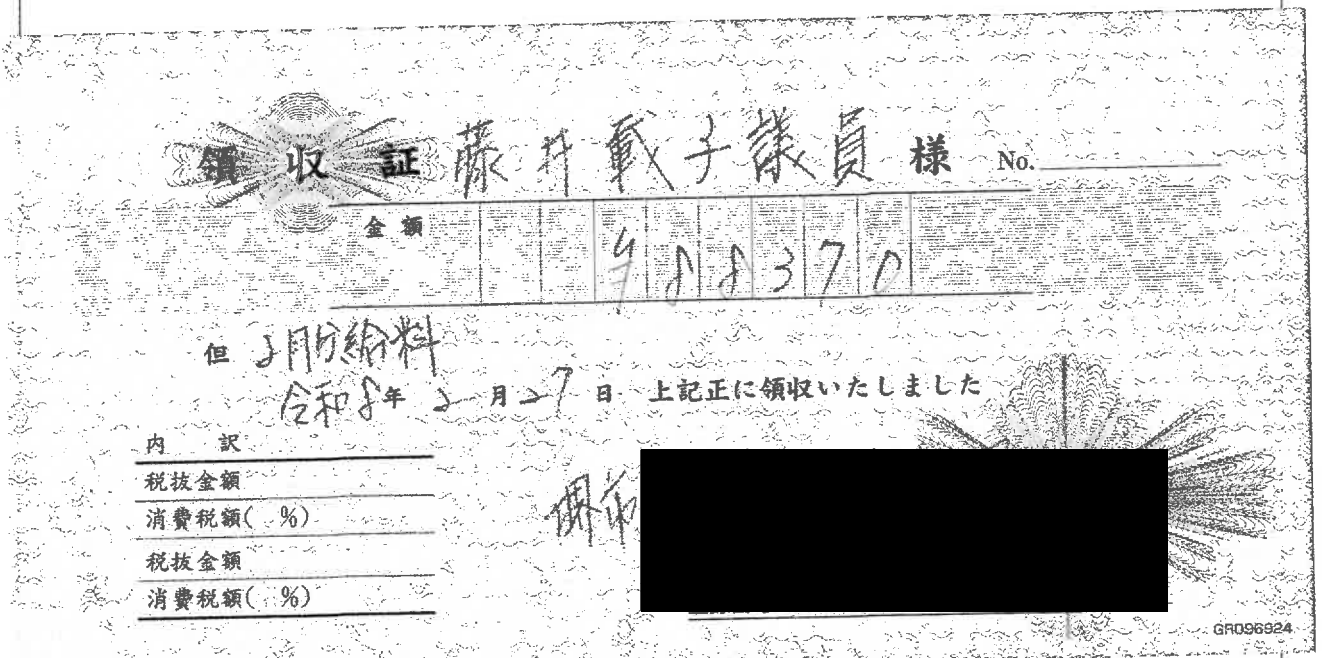 領収証 藤井載子議員 様 No.
金額 ¥88370
但 2月分給料
令和8年 2月27日 上記正に領収いたしました
内訳
税抜金額
消費税額( %)
税抜金額
消費税額( %)
堺市
GR096924